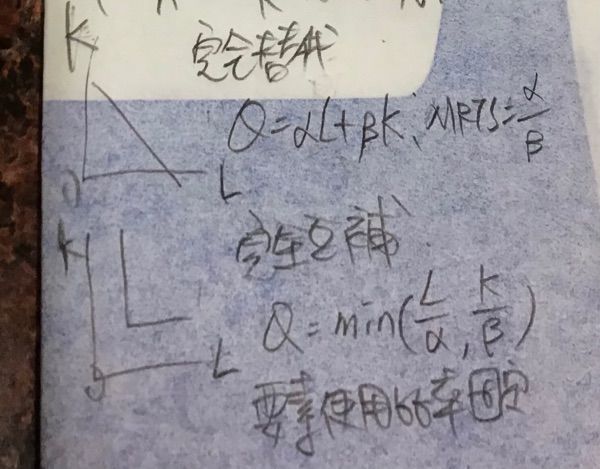 完全替代
K
Q=αL+βK, MRTS=α/β
0 L
完全互補
K
Q=min(L/α, K/β)
0 L
要素使用比率固定